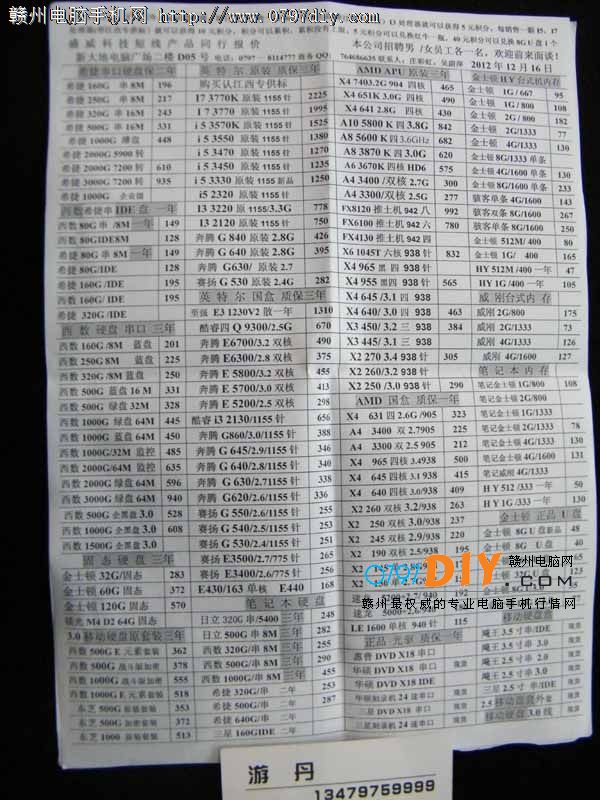 赣州电脑手机网 http://www.0797diy.com
盛威科技短线产品同行报价
本公司招聘男/女员工各一名，欢迎前来面谈！
新大地电脑广场二楼 D05号
2012年12月16日
希捷串口硬盘保二年
希捷 160G 串 8M 196
希捷 250G 串 8M 217
希捷 320G 串 16M 243
希捷 500G 串 16M 331
希捷 1000G 薄盘 448
希捷 2000G 5900转
希捷 2000G 7200转 610
希捷 3000G 7200转 935
希捷 1000G 企业级
西数希捷串IDE盘一年
西数 80G串/8M一年 149
西数 80GIDE8M 128
希捷 80G串 8M一年 149
希捷 80G/IDE 128
希捷 160G/IDE 195
西数 160G/IDE 195
希捷 320G/IDE
西数硬盘串口三年
西数 160G/8M 蓝盘 201
西数 250G 8M 蓝盘 225
西数 320G/8M 蓝盘 250
西数 500G 蓝盘 16M 331
西数 500G 绿盘 32M 328
西数 1000G 绿盘 64M 445
西数 1000G 蓝盘 64M 450
西数 1000G/32M 监控 485
西数 2000G/64M 监控 635
西数 2000G 绿盘 64M 596
西数 3000G 绿盘 64M 940
西数 500G 企黑盘 3.0 528
西数 1000G 企黑盘 3.0 608
西数 1500G 企黑盘 3.0
固态硬盘三年
金士顿 32G/固态 283
金士顿 60G/固态 372
金士顿 120G 固态 570
镁光 M4 D2 64G 固态
3.0移动硬盘原套装三年
西数 500G E元素套装 362
西数 500G 战斗版加密 378
西数 1000G 战斗版加密 555
西数 1000G E元素套装 518
东芝 500G 353
东芝 500G 加密套装 372
东芝 1000 原装套装 513
英特尔原装质保三年
购买认江西专供标
I7 3770K 原装 1155针 2225
I7 3770 原装 1155针 1995
i5 3570K 原装 1155针 1525
i5 3550 原装 1155针 1380
i5 3470 原装 1155针 1270
i5 3450 原装 1155针 1235
i5 3330 原装 1155新品 1250
i5 2320 原装 1155针
I3 3220 原装 1155/3.3G 778
I3 2120 原装 1155针 750
奔腾 G 840 原装 2.8G 426
奔腾 G 640 原装 2.8G 395
奔腾 G630/ 原装 2.7
赛扬 G 530 原装 2.4G 282
英特尔国盒质保三年
至强 E3 1230V2 散一年 1310
酷睿四 Q 9300/2.5G 670
奔腾 E6700/3.2 双核 490
奔腾 E6300/2.8 双核 375
奔腾 E 5800/3.2 双核 455
奔腾 E 5700/3.0 双核 413
奔腾 E 5200/2.5 双核 298
酷睿 i3 2130/1155针 656
奔腾 G860/3.0/1155针 388
奔腾 G 645/2.9/1155针 346
奔腾 G 640/2.8/1155针 340
奔腾 G 630/2.7/1155针 338
奔腾 G620/2.6/1155针 336
赛扬 G 550/2.6/1155针 255
赛扬 G 540/2.5/1155针 253
赛扬 G 530/2.4/1155针 251
赛扬 E3500/2.7/775针 265
赛扬 E3400/2.6/775针 256
E430/163 单核 E440 168
笔记本硬盘
日立 320G 串/5400三年 248
日立 500G/串 8M三年 282
西数 320G/串 8M二年 255
西数 500G/串 8M二年 289
西数 1000G/串 8M三年 455
希捷 320G/串 二年 253
希捷 500G/串 二年 287
希捷 640G/串 二年
三星 160GIDE 二年
AMD APU 原装三年
X4 7403.2G 904 四核 465
X4 651K 3.0G 四核 490
X4 641 2.8G 四核 430
A10 5800 K 四 3.8G 842
A8 5600 K 四 3.6GHz 682
A8 3870 K 四 3.0G 620
A6 3670K 四核 HD6 575
A4 3400 /双核 2.7G 300
A4 3300/双核 2.5G 277
FX8120 推土机 942 八 992
FX6100 推土机 942 六 780
FX4130 推土机 942 四
X6 1045T 六核 938针 832
X4 965 黑四 938针
X4 955 黑四 938针 565
X4 645 /3.1 四 938
X4 640/3.0 四 938 463
X3 450/ 3.2 三 938 384
X3 445/ 3.1 三 938
X2 270 3.4 938针 305
X2 260/3.2 938针
X2 250 /3.0 938针 290
AMD 国盒 质保一年
X4 631 四 2.6G /905 323
A4 3400 双 2.7905 225
A4 3300 双 2.5 905 212
X4 965 四核 3.4938 500
X4 645 四核 3.1 938 415
X4 640 四核 3.0/938 409
X2 260 双核 3.2/938 263
X2 250 双核 3.0/938 237
X2 245 双核 2.9/938 220
X2 190 双核 2.5/938 195
LE 1600 单核 940针 115
正品 光驱 质保一年
惠普 DVD X18 串口 现货
华硕 DVD X18 串口 现货
华硕 DVD X18 IDE 现货
三星刻录机 24速串口 现货
三星 DVD X18 串口 现货
华硕刻录机 24速串口 现货
金士顿 HY 台式机内存
金士顿 1G/ 667 95
金士顿 1G/ 800 108
金士顿 2G/ 800 182
金士顿 2G/1333 77
金士顿 4G/1333 132
金士顿 8G/1333 单条
金士顿 4G/1600 单条 130
金士顿 8G/1600 单条 233
骇客单条 4G/1600 143
骇客双条 8G/1600 267
骇客单条 8G/1600 250
金士顿 512M/ 400 80
金士顿 1G/ 400 165
HY 512M /400 一年 47
HY 1G/400 一年 105
威刚台式内存
威刚 2G/800 175
威刚 2G/1333 73
威刚 4G/1333 126
威刚 4G/1600 127
笔记本内存
笔记金士顿 1G/800 108
笔记金士顿 2G/800
笔记金士顿 1G/1333
笔记金士顿 2G/1333 78
笔记金士顿 4G/1333 130
笔记金士顿 4G/1600 130
笔记威刚 4G/1333
HY 512 /333 一年 50
HY 1G /333 一年 130
金士顿 正品 U盘
金士顿 8G U盘新品 48
金士顿 8G U盘 40
移动硬盘盒
飚王 3.5寸串/IDE 现货
飚王 3.5寸串 3.0 现货
飚王 2.5寸串 2.0 现货
飚王 2.5寸串 3.0 现货
三星 2.5寸串/IDE 现货
2.5移动硬盘外套 现货
移动硬盘 3.0线 现货
0797DIY.COM
赣州电脑网
赣州最权威的专业电脑手机行情网
游丹
13479759999